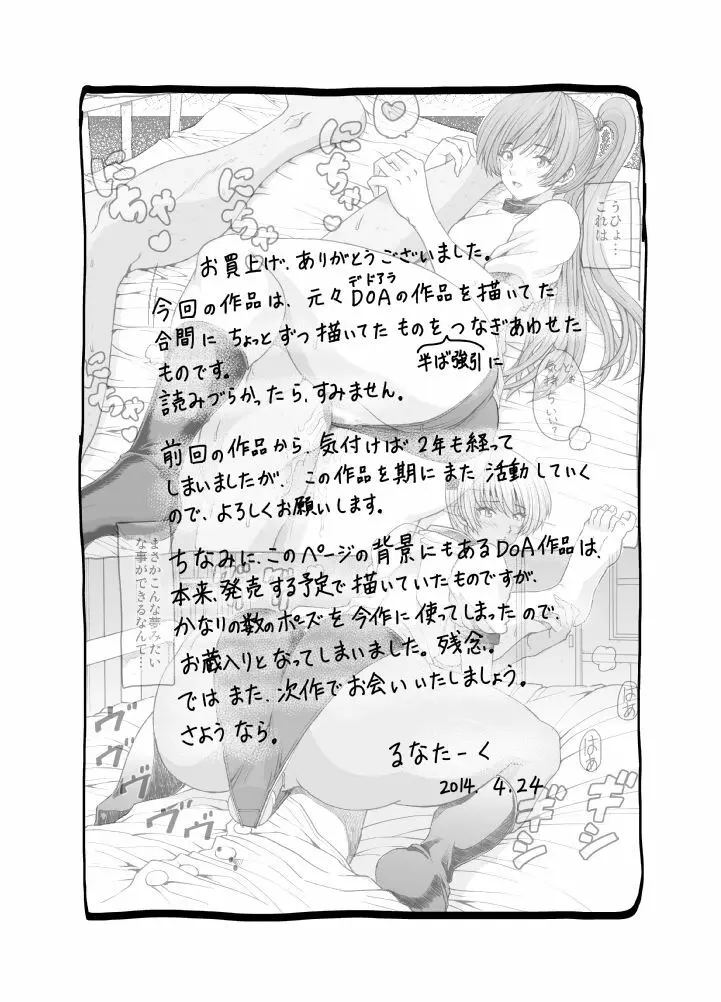 お買上げ、ありがとうございました。
デドアラ
今回の作品は、元々DOAの作品を描いてた
合間にちょっとずつ描いてたものをつなぎあわせた
半ば強引に
ものです。
読みづらかったら、すみません。
前回の作品から、気付けば2年も経って
しまいましたが、この作品を期にまた活動していく
ので、よろしくお願いします。
ちなみに、このページの背景にもあるDOA作品は、
本来、発売する予定で描いていたものですが、
かなりの数のポーズを今作に使ってしまったので、
お蔵入りとなってしまいました。残念。
ではまた、次作でお会いいたしましょう。
さようなら。
るなたーく
2014. 4.24
うひょ…
これは
にちゃ
にちゃ
にちゃ
気持ちいい?
まさかこんな夢みたい
な事ができるなんて…
はぁ
はぁ
ギシ
ギシ
ヴヴ
ヴヴヴ